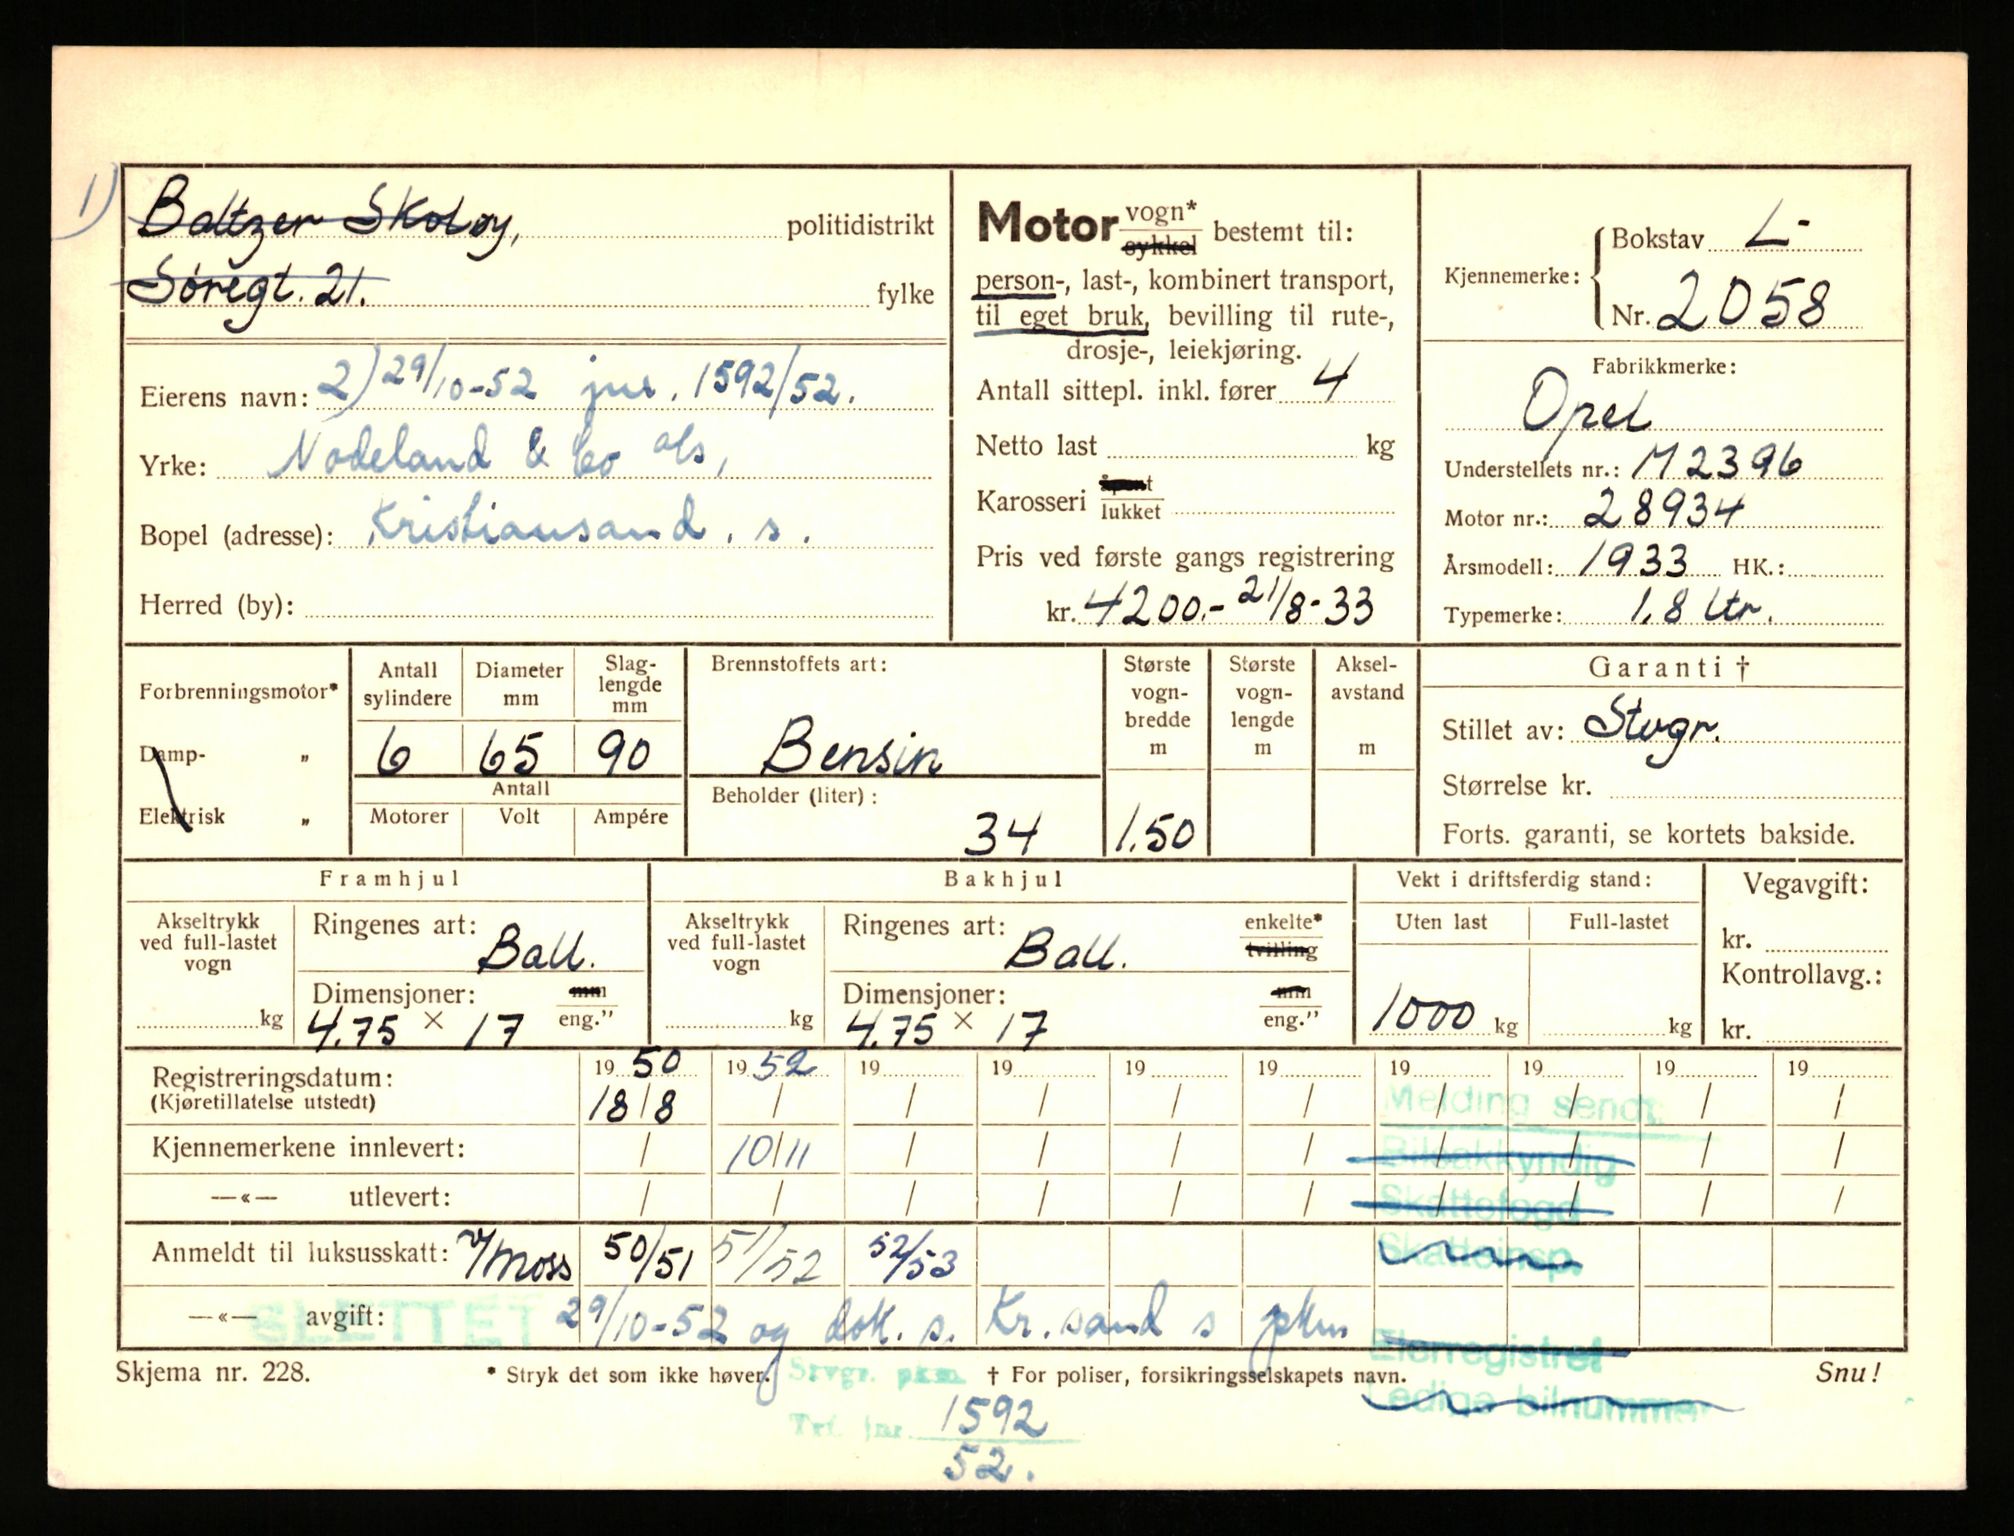 1)
Baltzer Skoløy, politidistrikt
Søregt. 21. fylke
Eierens navn: 2) 29/10-52 jnr. 1592/52.
Yrke: Nodeland & Co a/s,
Bopel (adresse): Kristiansand. s.
Herred (by):
Motor vogn* sykkel bestemt til:
person-, last-, kombinert transport,
til eget bruk, bevilling til rute-,
drosje-, leiekjøring.
Antall sittepl. inkl. fører 4
Netto last kg
Karosseri åpent lukket
Pris ved første gangs registrering
kr. 4200.- 21/8-33
Kjennemerke: Bokstav L-
Nr. 2058
Fabrikkmerke:
Opel
Understellets nr.: M2396
Motor nr.: 28934
Årsmodell: 1933 HK.:
Typemerke: 1,8 ltr.
Forbrenningsmotor*
Damp- „
Elektrisk „
Antall sylindere Diameter mm Slaglengde mm
6 65 90
Antall
Motorer Volt Ampére
Brennstoffets art:
Bensin
Beholder (liter):
34
Største vognbredde m
1.50
Største vognlengde m
Akselavstand m
Garanti †
Stillet av: Stvgr.
Størrelse kr.
Forts. garanti, se kortets bakside.
Framhjul
Akseltrykk ved full-lastet vogn
kg
Ringenes art:
Ball.
Dimensjoner: mm
4.75 × 17 eng.”
Bakhjul
Akseltrykk ved full-lastet vogn
kg
Ringenes art: enkelte*
Ball. tvilling
Dimensjoner: mm
4.75 × 17 eng.”
Vekt i driftsferdig stand:
Uten last Full-lastet
1000 kg kg
Vegavgift:
kr.
Kontrollavg.:
kr.
Registreringsdatum: 1950 1952 19 19 19 19 19 19 19 19
(Kjøretillatelse utstedt) 18/8 / / / / / / / / /
Melding sendt
Kjennemerkene innlevert: / 10/11 / / / / / / / /
Bilsakkyndig
—«— utlevert: / / / / / / / / / /
Skattefogd
Anmeldt til luksusskatt: v/Moss 50/51 51/52 52/53
Skatteinsp.
—«— avgift: 29/10-52 og dok. s. Kr.sand s pkm
SLETTET
Eierregistret
Skjema nr. 228. * Stryk det som ikke høver. † For poliser, forsikringsselskapets navn. Snu!
Stvgr. pkm.
Ledige bilnummer
Trf. jnr. 1592
52.